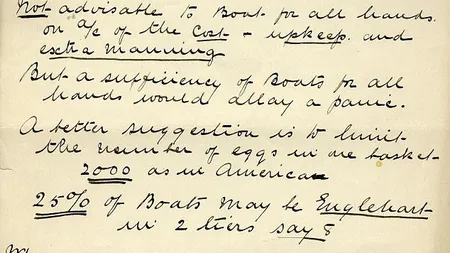 Not advisable to Boat for all hands.
on a/c of the Cost - upkeep and
extra manning
But a sufficiency of Boats for all
hands would allay a panic.
A better suggestion is to limit
the number of eggs in one basket
2000 as in America
25% of Boats may be Englehart
in 2 tiers say 8